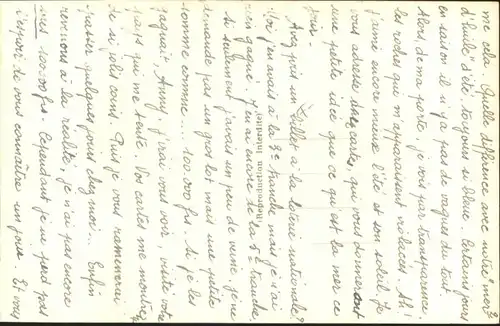 me cela. Quelle différence avec notre "mer"
d'huile" d'été toujours si bleue. Certains jours
en saison il n'y a pas de vagues du tout.
Alors, de ma porte, je vois par transparence,
les roches qui m'apparaissent violacés. Ah!
j'aime encore mieux l'été et son soleil. Je
vous adresse des cartes, qui vous donneront
une petite idée de ce qu'est la mer ce
jour.
Avez pris un billet à la loterie nationale?
Moi j'en avais à la 3e tranche mais je n'ai
rien gagné. J'en ai encore de la 5e tranche.
si seulement j'avais un peu de veine. Je ne
demande pas un gros lot, mais une petite
somme comme... 100.000 fs. Si je les
gagnait Anny, j'irai vous voir, visite votre
pays qui me tente. Vos cartes me montrez
de si jolis coins. Puis je vous ramènerai
passer quelques jours chez moi... Enfin
revenons à la réalité, je n'ai pas encore
mes 100.000 fs. Cependant je ne perd pas
l'espoir de vous connaître un jour. Et vous
Reproduction Interdite